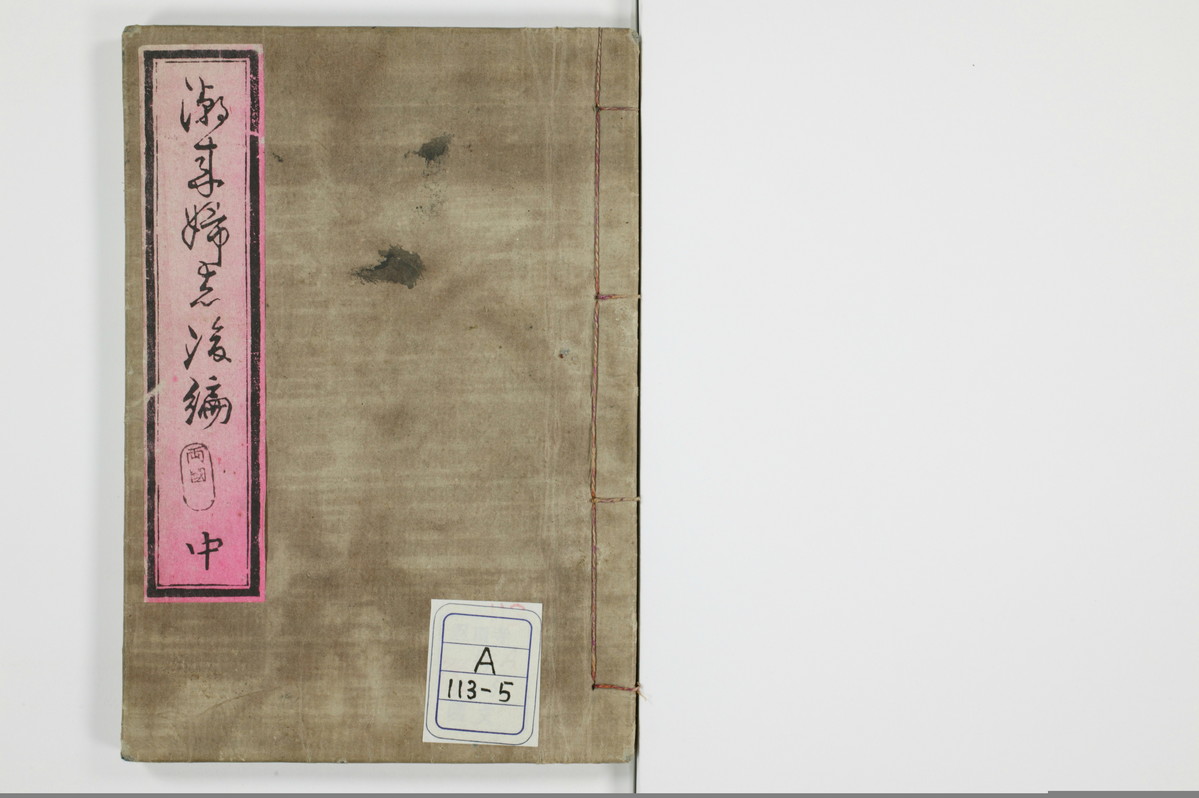 潮来婦志後編
両国
中
A
113-5